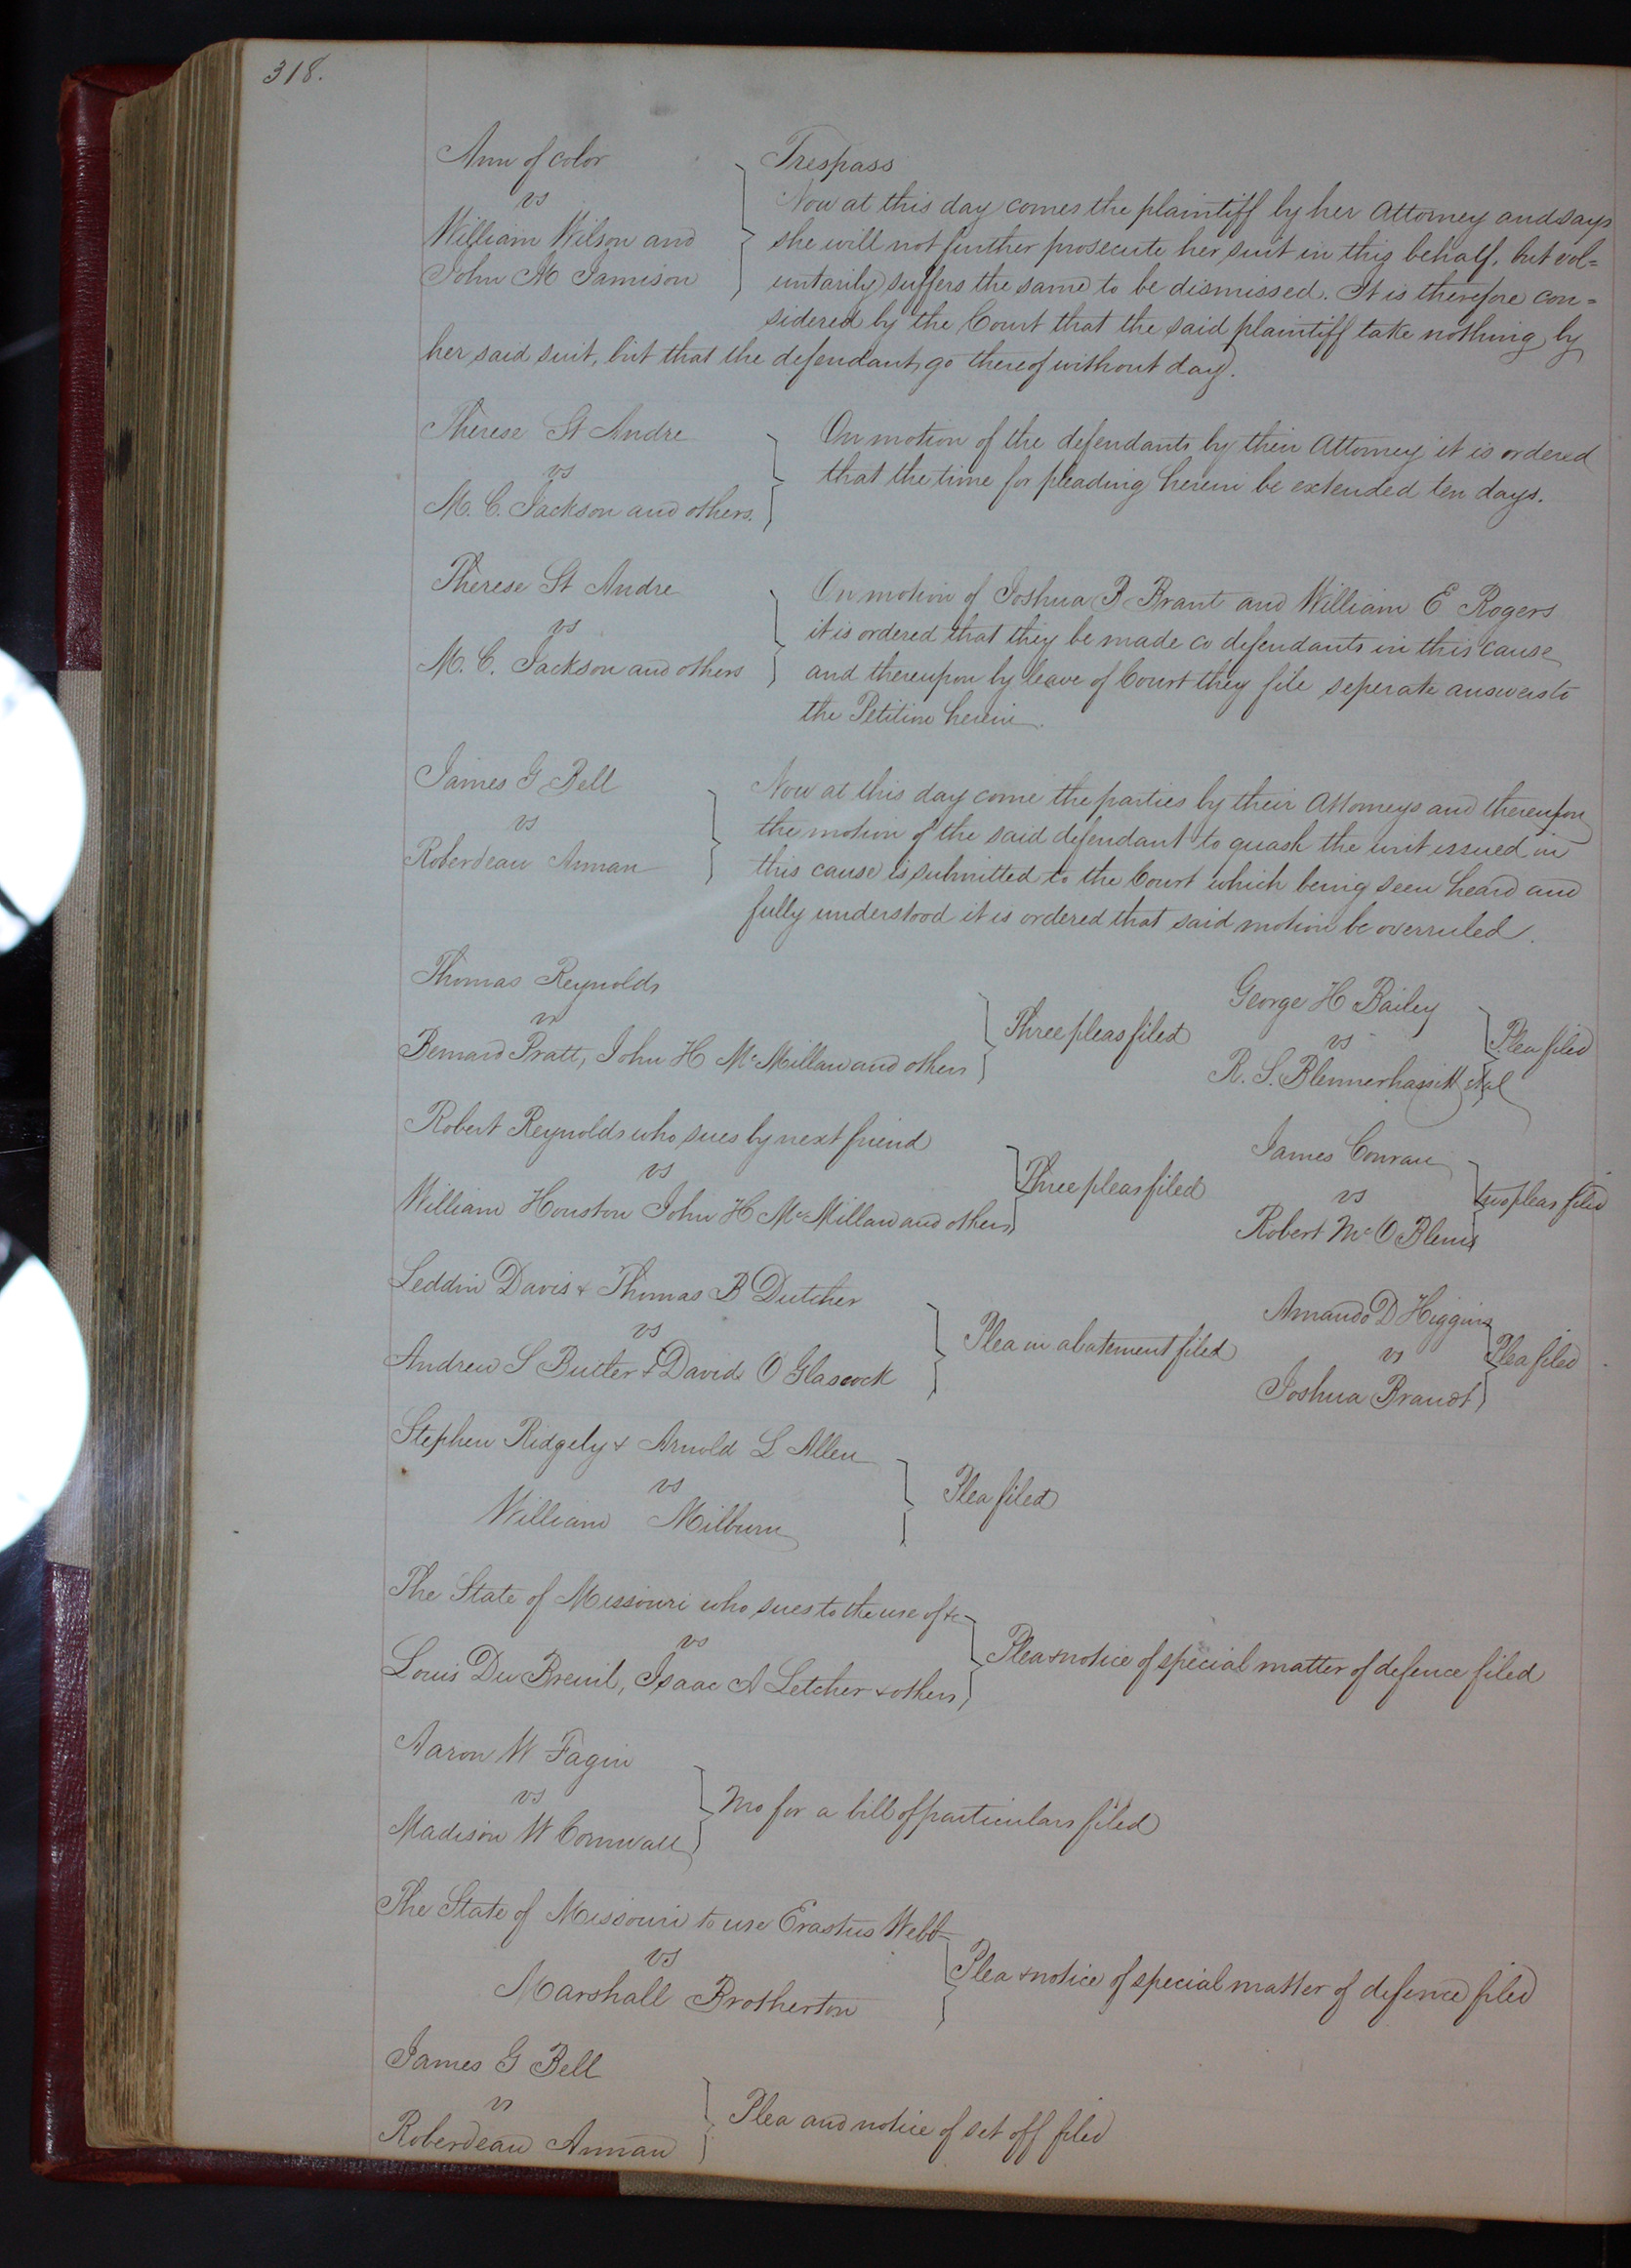 318.
Ann of color
vs
William Wilson and
John M Jamison
Trespass
Now at this day comes the plaintiff by her Attorney and says
she will not further prosecute her suit in this behalf, but vol=
untarily suffers the same to be dismissed. It is therefore con=
sidered by the Court that the said plaintiff take nothing by
her said suit, but that the defendant, go thereof without day.
Therese St Andre
vs
M. C. Jackson and others.
On motion of the defendants by their Attorney it is ordered
that the time for pleading herein be extended ten days.
Therese St Andre
vs
M. C. Jackson and others
On motion of Joshua B Brant and William E Rogers
it is ordered that they be made co defendants in this cause
and thereupon by leave of Court they file seperate answers to
the Petition herein.
James G Bell
vs
Roberdeau Annan
Now at this day come the parties by their Attorneys and thereupon
the motion of the said defendant to quash the writ issued in
this cause is submitted to the Court which being seen heard and
fully understood it is ordered that said motion be overruled.
Thomas Reynolds
vs
Bernard Pratt, John H McMillan and others
Three pleas filed
George H Bailey
vs
R. S. Blennerhassett et al
Plea filed
Robert Reynolds who sues by next friend
vs
William Houston John H McMillan and others
Three pleas filed
James Conran
vs
Robert Mc O Blenis
two pleas filed
Leddin Davis & Thomas B Dutcher
vs
Andrew S Butler & David O Glascock
Plea in abatement filed
Amando D Higgins
vs
Joshua Brandt
Plea filed
Stephen Ridgely & Arnold L Allen
vs
William Milburn
Plea filed
The State of Missouri who sues to the use of &c
vs
Louis Du Breuil, Isaac A Letcher & others
Plea & notice of special matter of defence filed
Aaron W Fagin
vs
Madison W Cornwall
Mo for a bill of particulars filed
The State of Missouri to use Erastus Webb
vs
Marshall Brotherton
Plea & notice of special matter of defence filed
James G Bell
vs
Roberdeau Annan
Plea and notice of set off filed